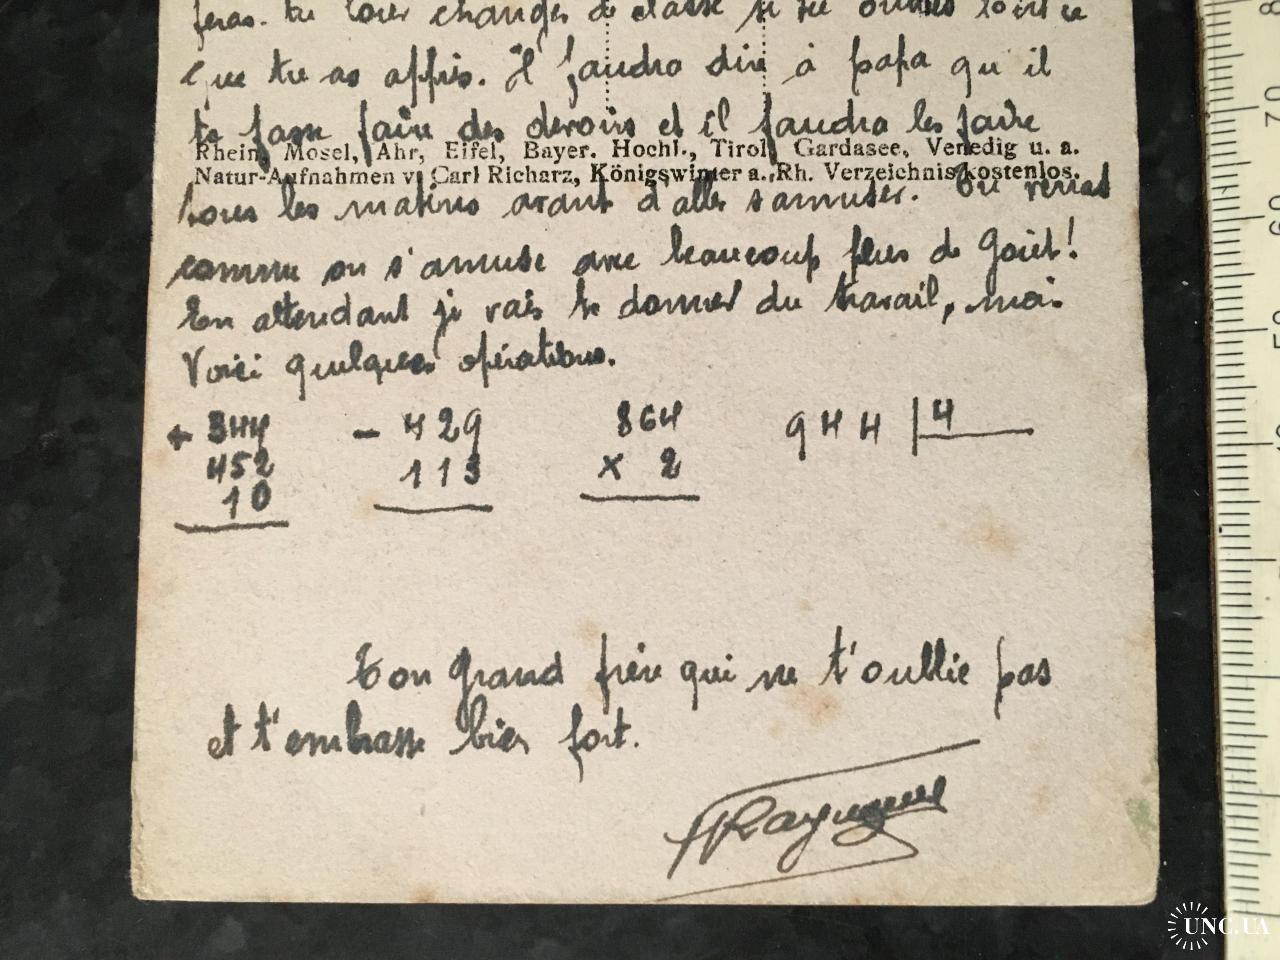 feras. tu
que tu as appris. Il faudra dire à papa qu'il
te fasse faire des devoirs et il faudra les faire
Rhein, Mosel, Ahr, Eifel, Bayer. Hochl., Tirol, Gardasee, Venedig u. a.
Natur-Aufnahmen v. Carl Richarz, Königswinter a. Rh. Verzeichnis kostenlos.
tous les matins avant d'aller s'amuser. Tu verras
comme on s'amuse avec beaucoup plus de gaiet!
En attendant je vais te donner du travail, moi
Voici quelques opérations.
+ 344 - 429 864 944 | 4
452 113 x 2
10
Ton grand frère qui ne t'oublie pas
et t'embrasse bien fort.
UNC.UA